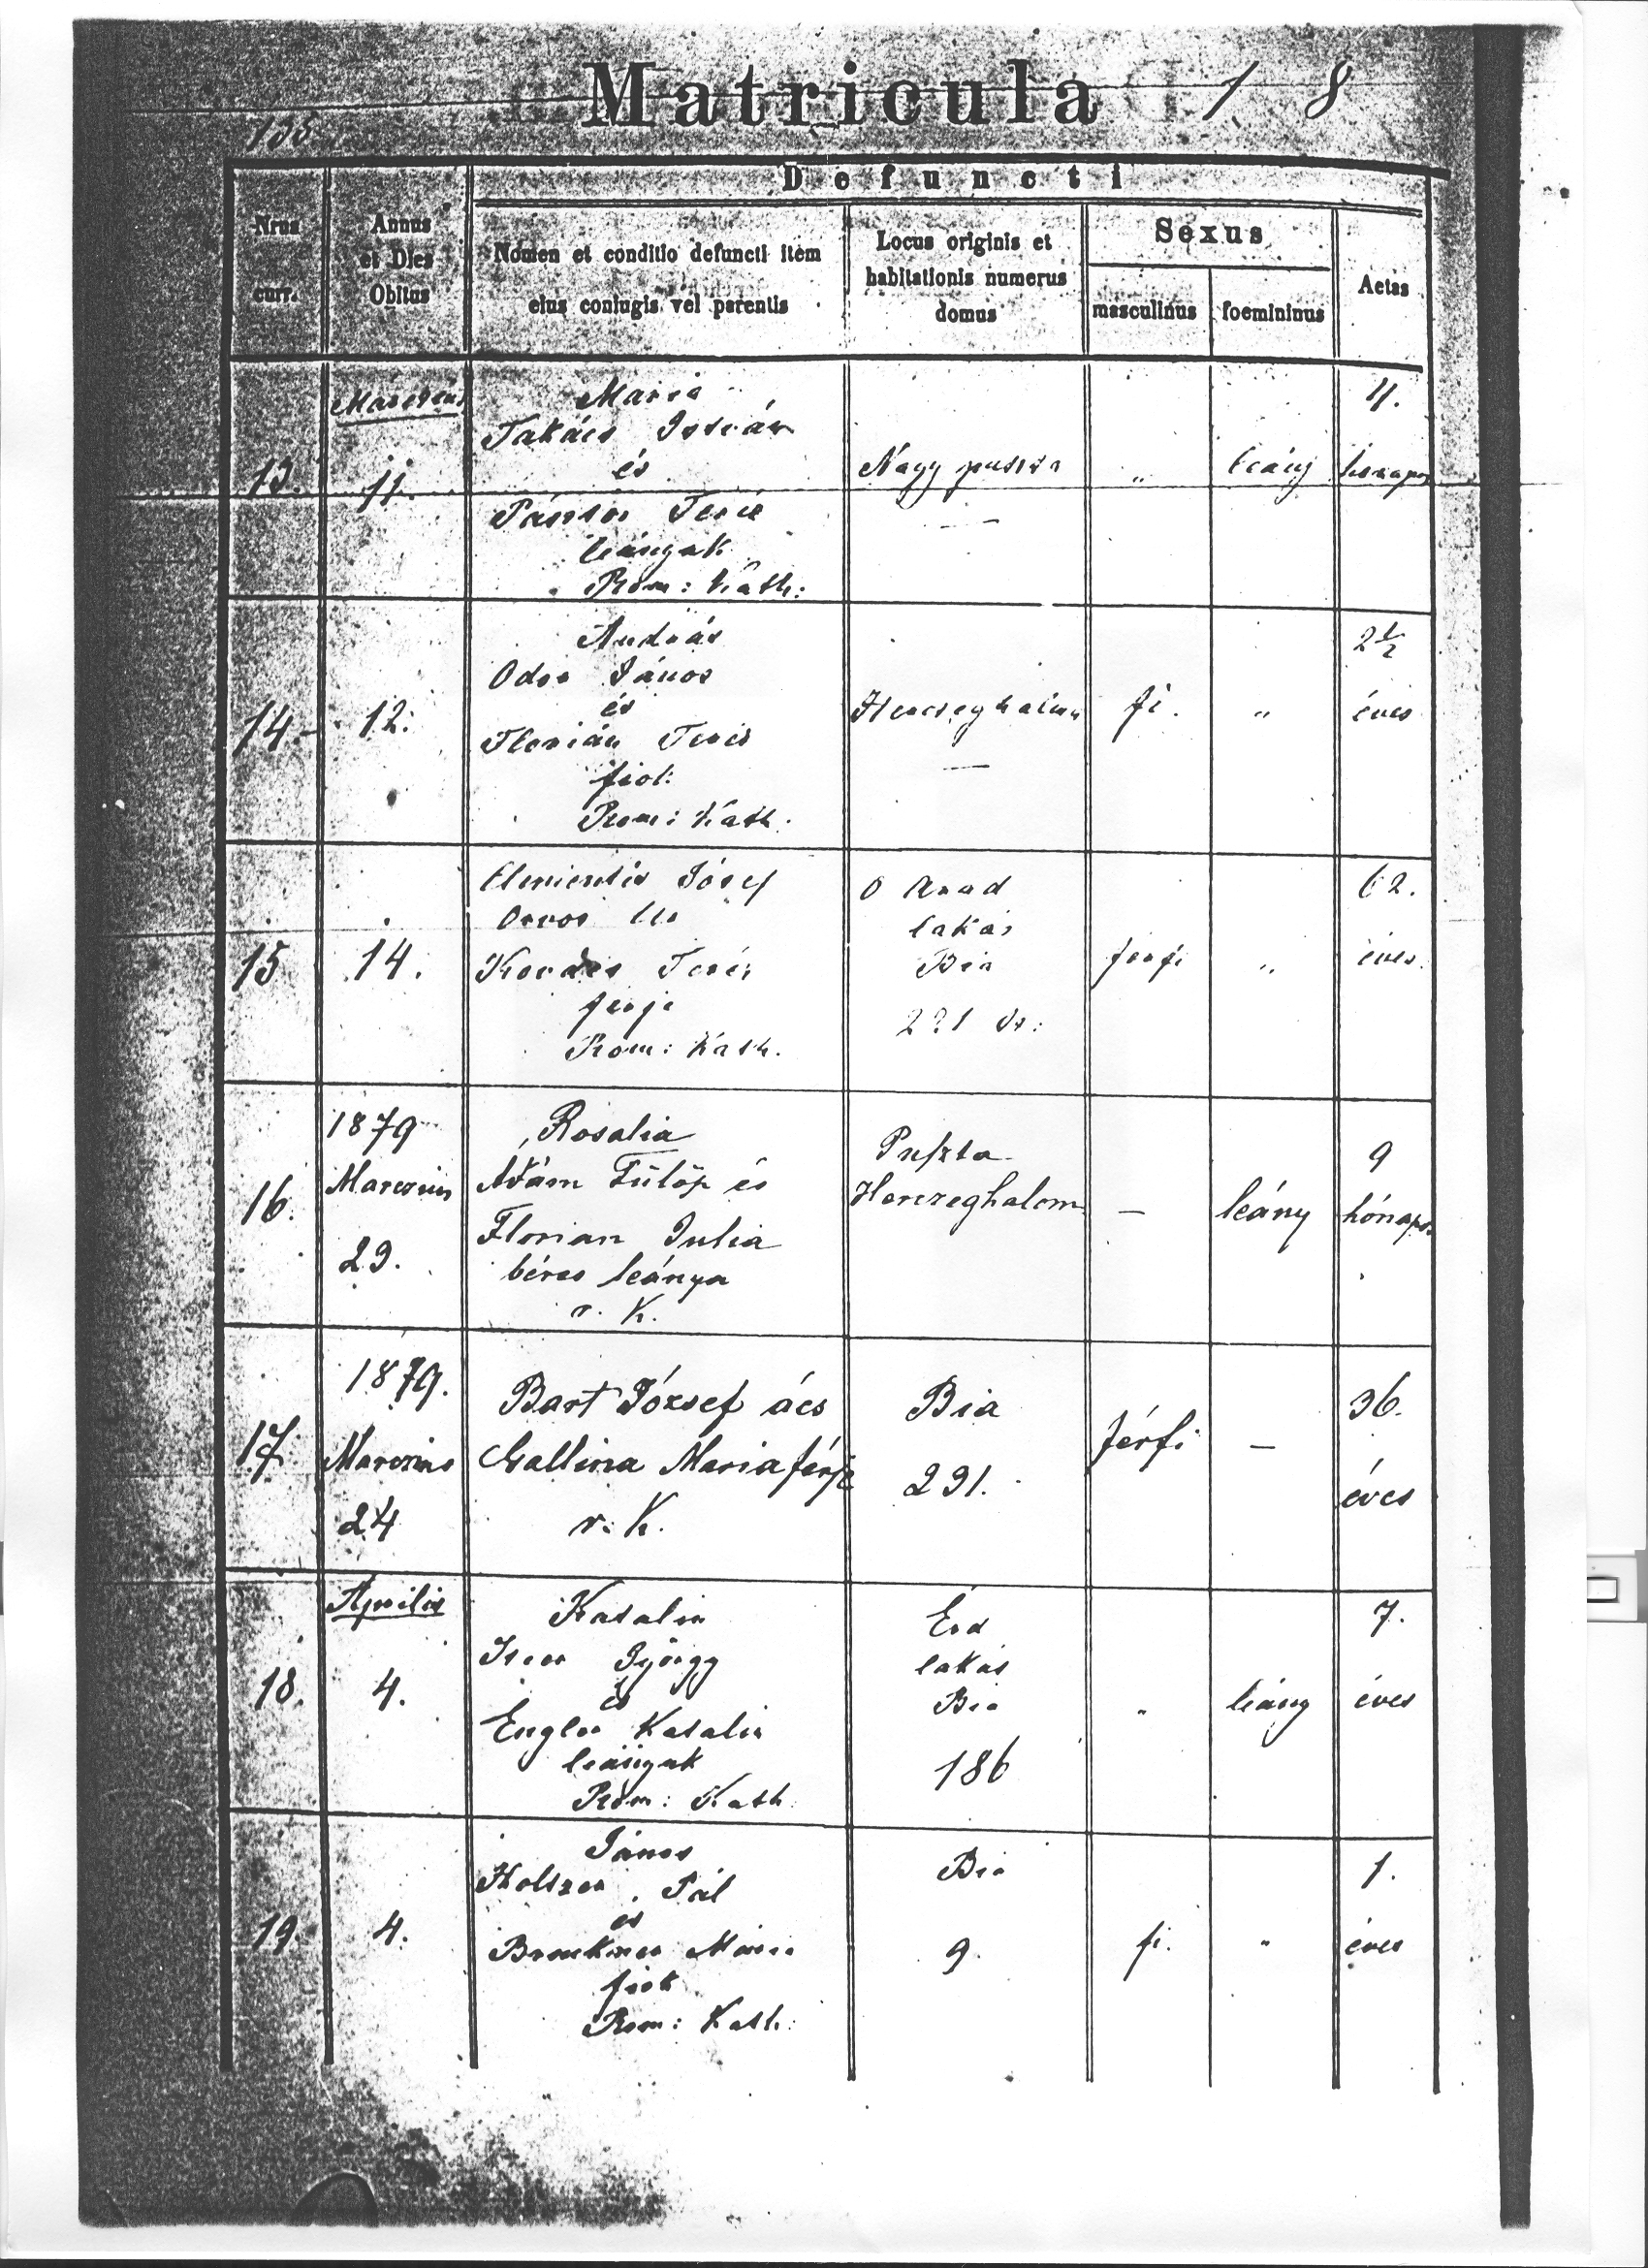 Matricula 1 8
135.
Defuncti
Nrus
curr.
Annus
et Dies
Obitus
Nomen et conditio defuncti item
eius coniugis vel parentis
Locus originis et
habitationis numerus
domus
Sexus
masculinus
foemininus
Aetas
13.
Marczius
11.
Maria
Takács István
és
Teréz
leányak
Rom: Kath:
Nagy puszta
—
„
leány
hónapos
14.
12.
András
Odor János
és
Florián Teréz
fiok
Rom: Kath.
Herczeghalom
—
fi.
„
2 1/2
éves
15
14.
József
Orvos
Kovács Teréz
férje
Rom: Kath.
O Arad
lakás
Bia
férfi
„
62.
éves
16.
1879
Marczius
23.
Rosalia
Ádám Fülöp és
Florian Julia
béres leánya
r. K.
Puszta
Herczeghalom
—
leány
9
hónapos
17.
1879.
Marczius
24
Bart József ács
Gallina Maria férje
r. K.
Bia
291.
férfi
—
36.
éves
18.
Április
4.
Katalin
György
és
Engler Katalin
leányak
Rom: Kath.
Érd
lakás
Bia
186
„
leány
7.
éves
19.
4.
János
Holtzer Pál
és
Mária
fiok
Rom: Kath:
Bia
9.
fi.
„
1.
éves